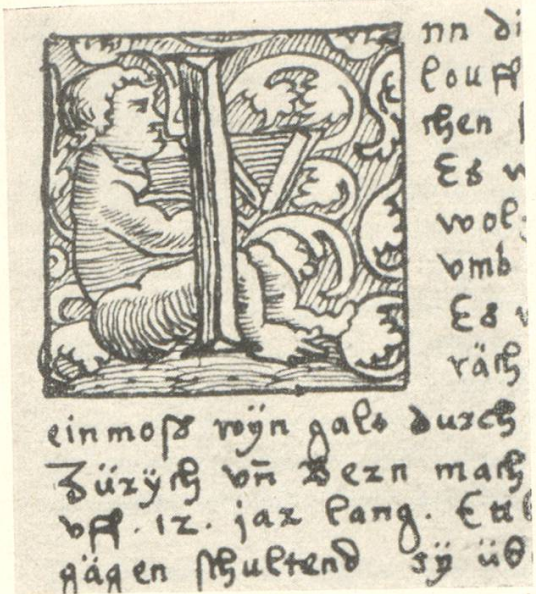 I nn di
louff
chen
Es w
wol
vmb
Es v
räch
einmoſs wÿn galt durch
Zürÿch vn̄ Bern mach
vff . 12 . jar lang . Ettl
gägen ſchultend sÿ üb